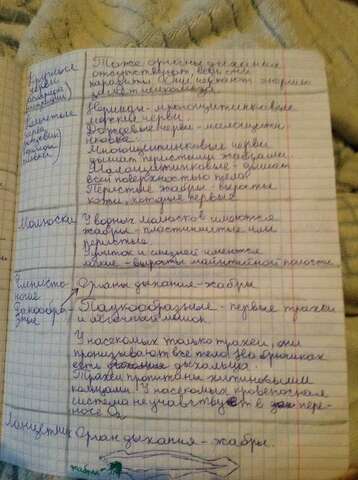 Круглые
черви
Тоже органы дыхания
отсутствуют, ведь они
паразиты. Они черпают энергию
Кольчатые
черви
Нереиды - многощетинковые
морские черви.
Дождевые черви - малощетин
ковые.
Многощетинковые черви
дышат перистыми жабрами.
Малощетинковые - дышат
всей поверхностью тела
Перистые жабры - выросты
кожи, которые первые
Моллюски
У водных молюсков имеются
жабры - пластинчатые или
перистые.
У улиток и слизней имеются
лёгкие - выросты мантийной полости
Членисто
ногие
Ракообра
зные
Органы дыхания - жабры
Паукообразные - первые трахеи
и лёгочный мешок
У насекомых только трахеи, они
пронизывают все тело. На брюшках
есть дыхальца.
Трахеи пропитаны хитиновыми
кольцами. У насекомых кровеносная
система не участвует в пере-
носе O₂
Ланцетник
Орган дыхания - жабры.
жабры